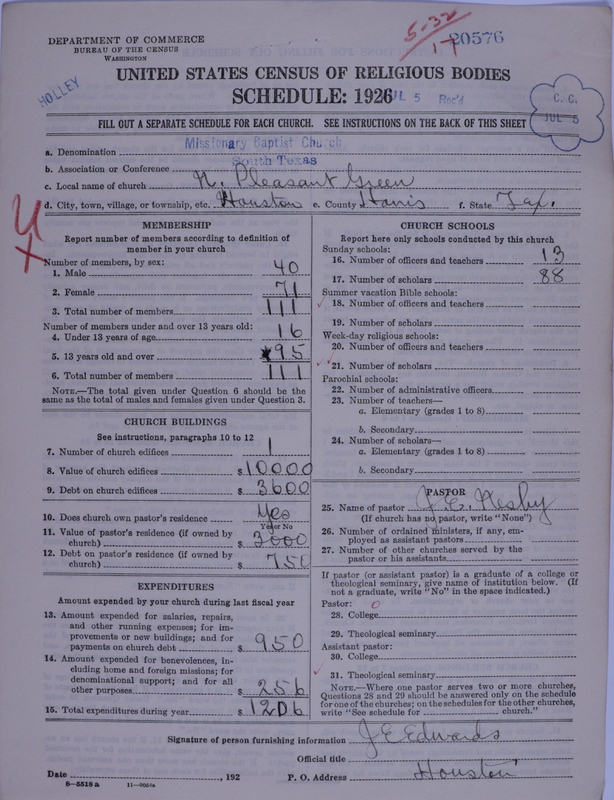 5-32
17
20576
DEPARTMENT OF COMMERCE
BUREAU OF THE CENSUS
WASHINGTON
UNITED STATES CENSUS OF RELIGIOUS BODIES
HOLLEY
SCHEDULE: 1926
JL 5 Rec'd
C. C.
JUL 5
FILL OUT A SEPARATE SCHEDULE FOR EACH CHURCH. SEE INSTRUCTIONS ON THE BACK OF THIS SHEET
a. Denomination Missionary Baptist Church
b. Association or Conference South Texas
c. Local name of church N. Pleasant Green
d. City, town, village, or township, etc. Houston e. County Harris f. State Tex.
MEMBERSHIP
Report number of members according to definition of
member in your church
Number of members, by sex:
1. Male 40
2. Female 71
3. Total number of members 111
Number of members under and over 13 years old:
4. Under 13 years of age 16
5. 13 years old and over 95
6. Total number of members 111
NOTE.—The total given under Question 6 should be the
same as the total of males and females given under Question 3.
CHURCH BUILDINGS
See instructions, paragraphs 10 to 12
7. Number of church edifices 1
8. Value of church edifices $10000
9. Debt on church edifices $3600
10. Does church own pastor's residence Yes
Yes or No
11. Value of pastor's residence (if owned by
church) $3000
12. Debt on pastor's residence (if owned by
church) $750
EXPENDITURES
Amount expended by your church during last fiscal year
13. Amount expended for salaries, repairs,
and other running expenses; for im-
provements or new buildings; and for
payments on church debt $950
14. Amount expended for benevolences, in-
cluding home and foreign missions; for
denominational support; and for all
other purposes $256
15. Total expenditures during year $1206
CHURCH SCHOOLS
Report here only schools conducted by this church
Sunday schools:
16. Number of officers and teachers 13
17. Number of scholars 88
Summer vacation Bible schools:
18. Number of officers and teachers
19. Number of scholars
Week-day religious schools:
20. Number of officers and teachers
21. Number of scholars
Parochial schools:
22. Number of administrative officers
23. Number of teachers—
a. Elementary (grades 1 to 8)
b. Secondary
24. Number of scholars—
a. Elementary (grades 1 to 8)
b. Secondary
PASTOR
25. Name of pastor J. E. Nesby
(If church has no pastor, write "None")
26. Number of ordained ministers, if any, em-
ployed as assistant pastors
27. Number of other churches served by the
pastor or his assistants
If pastor (or assistant pastor) is a graduate of a college or
theological seminary, give name of institution below. (If
not a graduate, write "No" in the space indicated.)
Pastor: 0
28. College
29. Theological seminary
Assistant pastor:
30. College
31. Theological seminary
NOTE.—Where one pastor serves two or more churches,
Questions 28 and 29 should be answered only on the schedule
for one of the churches; on the schedules for the other churches,
write "See schedule for church."
Signature of person furnishing information J E Edwards
Official title
Date , 192 P. O. Address Houston
8-5518a 11-9054a